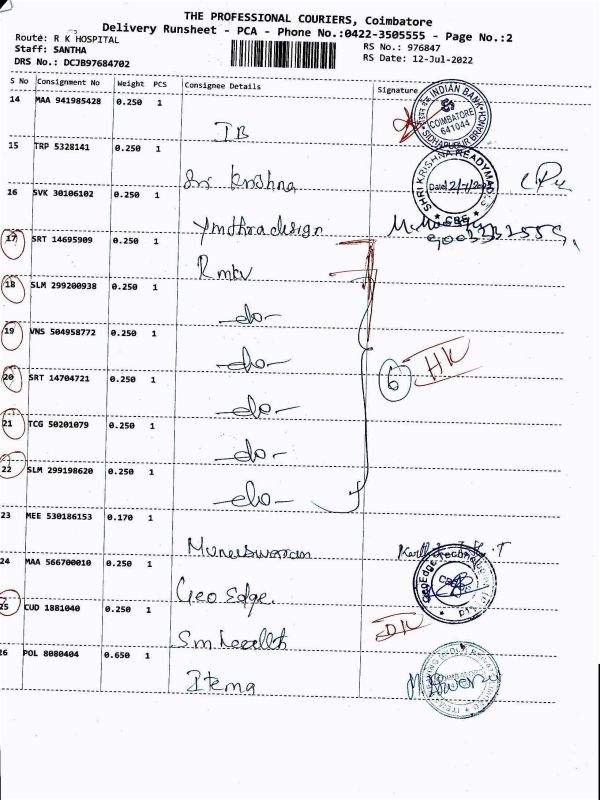 THE PROFESSIONAL COURIERS, Coimbatore
Delivery Runsheet - PCA - Phone No.:0422-3505555 - Page No.:2
Route: R K HOSPITAL
Staff: SANTHA
DRS No.: DCJB97684702
RS No.: 976847
RS Date: 12-Jul-2022
S No Consignment No Weight PCS Consignee Details Signature
14 MAA 941985428 0.250 1
IB
INDIAN BANK
COIMBATORE
641044
SIDHAPUDUR BRANCH
15 TRP 5328141 0.250 1
Sri Krishna
SHRI KRISHNA READYMADES
Date
CBE
16 SVK 30106102 0.250 1
Ymthra design
17 SRT 14695909 0.250 1
Rmkv
18 SLM 299200938 0.250 1
-do-
19 VNS 504958772 0.250 1
-do-
6 HK
20 SRT 14704721 0.250 1
-do-
21 TCG 50201079 0.250 1
-do-
22 SLM 299198620 0.250 1
-do-
23 MEE 530186153 0.170 1
Muneiswaran
24 MAA 566700010 0.250 1
Geo Edge.
GeoEdge Technologies
25 CUD 1881040 0.250 1
DK
26 POL 8080404 0.650 1
Itema